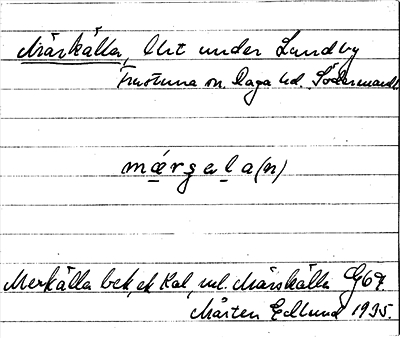 Märskälla, lht under Lundby
Frustuna sn. Daga hd. Södermanl.
mǽrsela(n)
Merkälla bek, ek Kal, ul. Märskälla G67.
Mårten Edlund 1935.